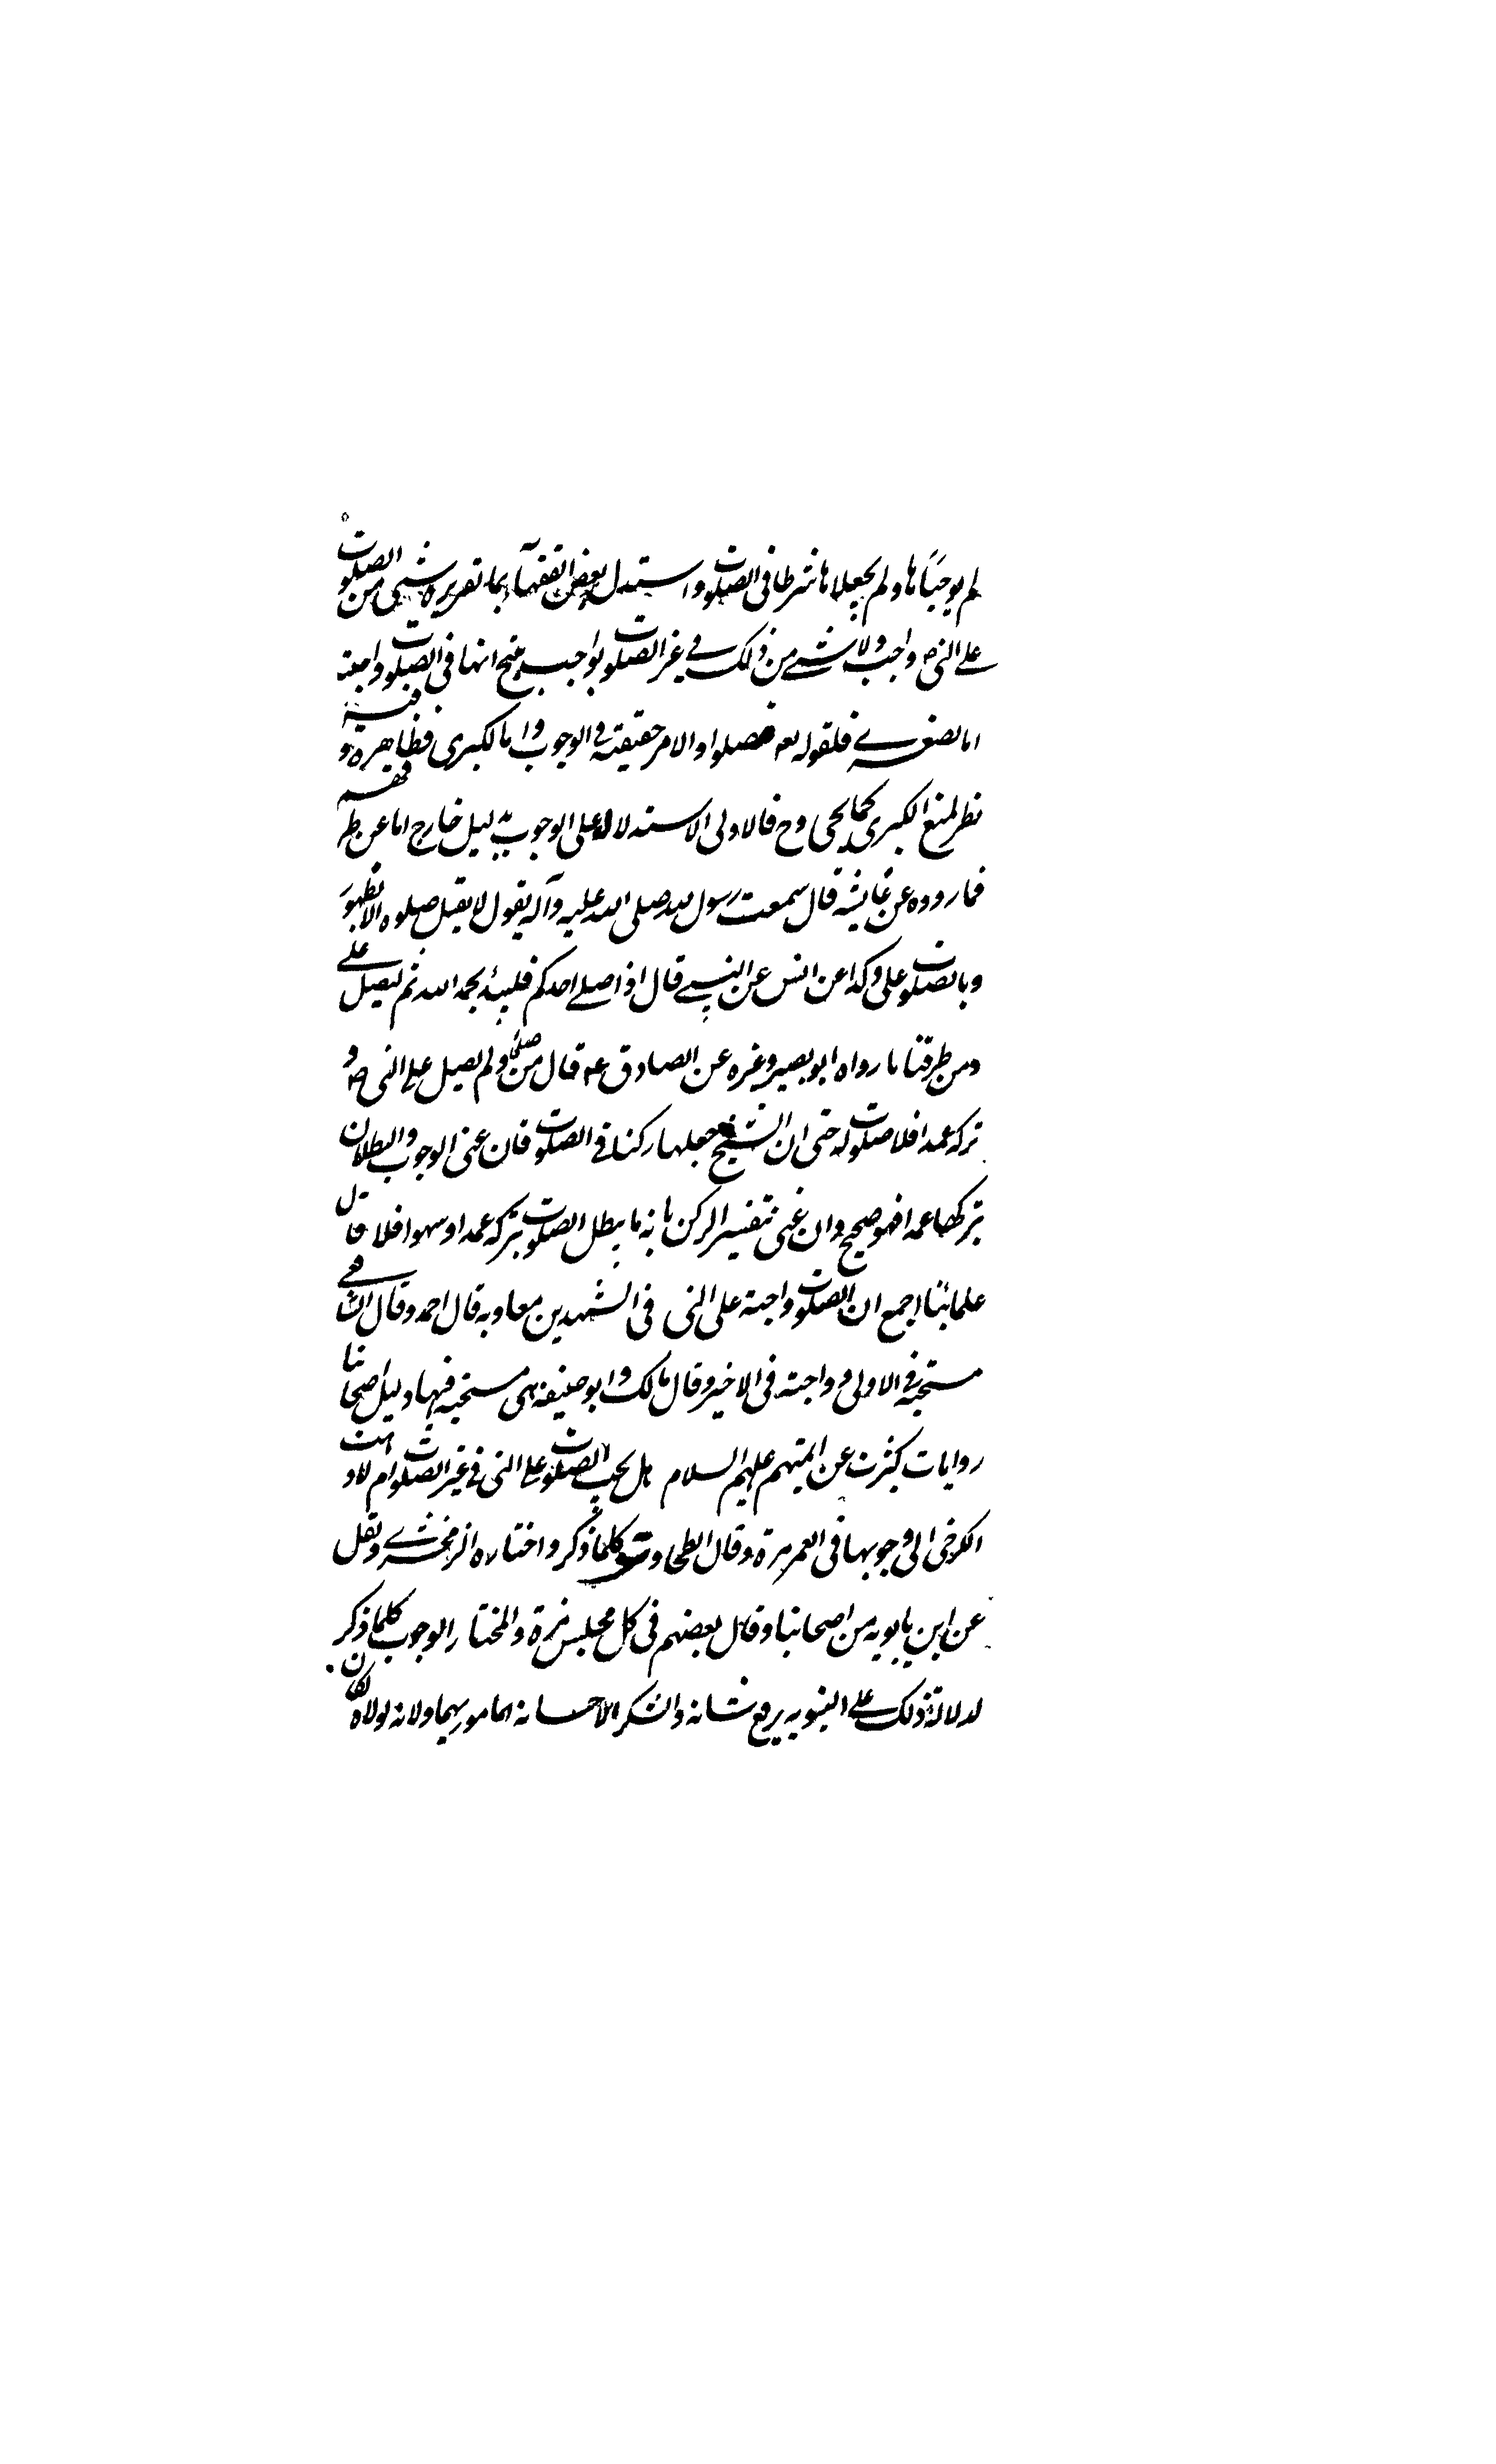 لم يوجباها ولم يجعلاها شرطا فى الصلوت واستدل بعض الفقهآء بما تقريره شىء من الصلوت
على النبى ص واجب ولا شے من ذلك فے غير الصلوت بواجب ينتج انها فى الصلوت واجبة
اما الصغرے فلقوله تعه صلوا والامر حقيقة فى الوجوب واما الكبرى فظاهرة و فيه
نظر لمنع الكبرى كما يجى وح فالاولى الاستدلال على الوجوب بدليل خارج اما عن طر
فما رووه عن عايشه قال سمعت رسول الله صلى الله عليه وآله يقول لا يقبل صلوه الا بطهور
وبالصلوت على وكذا عن انس عن النبے قال اذا صلے احدكم فليبدأ بحمد الله ثم ليصل علے
ومن طرقنا ما رواه ابو بصير وغره عن الصادق عه قال من صلى ولم يصل على النبى ص و
تركه عمدا فلا صلوت له حتى ان الشيخ جعلها ركنا فى الصلوت فان عنى الوجوب والبطلان
بتركها عمدا فهو صحيح وان عنى تفسير الركن بانه ما يبطل الصلوت بتركه عمدا او سهوا فلا قال
علمائنا اجمع ان الصلوت واجبة على النبى فى التشهدين معا وبه قال احمد وقال الشافعے
مستحبة فى الاولى و واجبة فى الاخير وقال مالك وابو حنيفه هى مستحبه فيها دليل اصحابنا
روايات كثرت عن ائمتهم عليهم السلام هل يجب الصلوت على النبى فى غير الصلوت ام لا ذهب
الكرخى الى وجوبها فى العمر مرة وقال الطحاوى كلما ذكر واختاره الزمخشرے ونقل
عن ابن بابويه من اصحابنا وقال بعضهم فى كل مجلس مرة والمختار الوجوب كلما ذكر
لدلالة ذلك على التنويه برفع شانه والشكر لاحسانه المامور بهما ولانه لولاه لكان